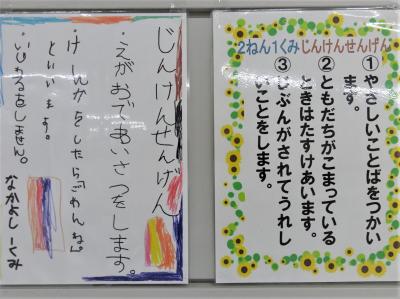 じんけんせんげん
・えがおであいさつをします。
・けんかをしたら「ごめんね」
といいます。
・いじわるをしません。
なかよし1くみ
2ねん1くみじんけんせんげん
①やさしいことばをつかい
ます。
②ともだちがこまっている
ときはたすけあいます。
③じぶんがされてうれし
いことをします。